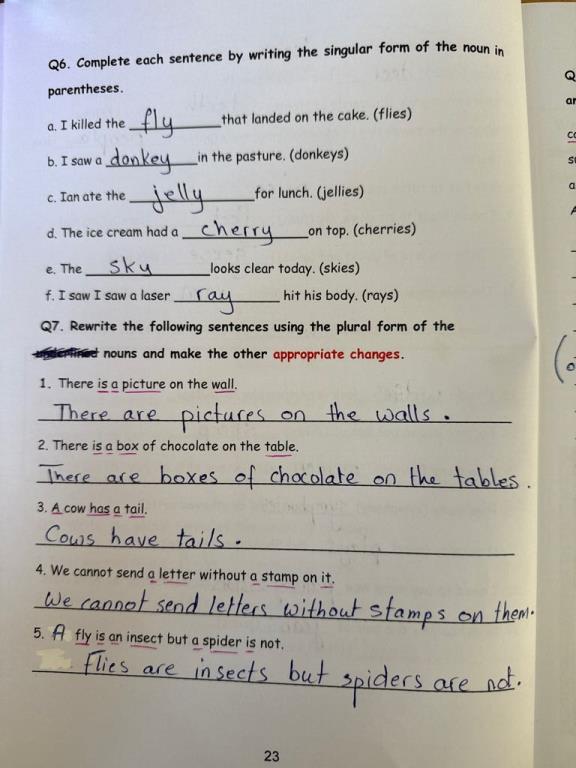 Q6. Complete each sentence by writing the singular form of the noun in
parentheses.
a. I killed the fly that landed on the cake. (flies)
b. I saw a donkey in the pasture. (donkeys)
c. Ian ate the jelly for lunch. (jellies)
d. The ice cream had a cherry on top. (cherries)
e. The sky looks clear today. (skies)
f. I saw I saw a laser ray hit his body. (rays)
Q7. Rewrite the following sentences using the plural form of the
nouns and make the other appropriate changes.
1. There is a picture on the wall.
There are pictures on the walls.
2. There is a box of chocolate on the table.
There are boxes of chocolate on the tables.
3. A cow has a tail.
Cows have tails.
4. We cannot send a letter without a stamp on it.
We cannot send letters without stamps on them.
5. A fly is an insect but a spider is not.
Flies are insects but spiders are not.
23